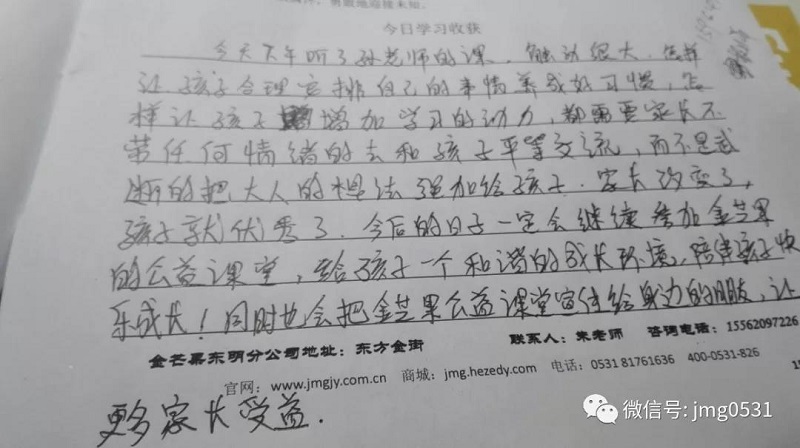 勇敢地迎接未知.
今日学习收获
今天下午听了孙老师的课、触动很大.怎样
让孩子合理安排自己的事情养成好习惯,怎
样让孩子增加学习的动力,都需要家长不
带任何情绪的去和孩子平等交流,而不是武
断的把大人的想法强加给孩子.家长改变了,
孩子就优秀了.今后的日子一定会继续参加金芒果
的公益课堂,给孩子一个和谐的成长环境,陪伴孩子快
乐成长!同时也会把金芒果公益课堂宣传给身边的朋友,让
金芒果东明分公司地址:东方金街 联系人:朱老师 咨询电话:15562097226
官网:www.jmgjy.com.cn 商城:jmg.hezedy.com 电话:0531 81761636 400-0531-826
更多家长受益.
微信号: jmg0531